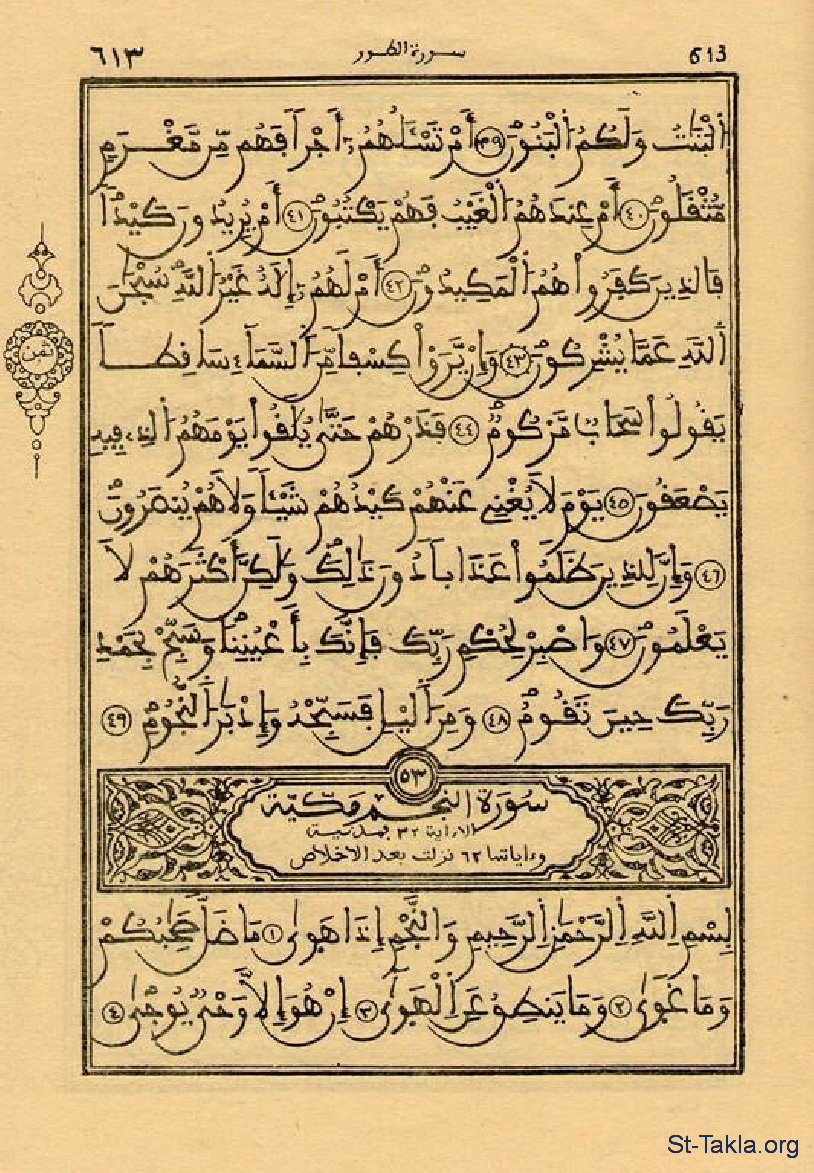 ٦١٣ سورة الطور 613
اَ۬لْبَنَٰتُ وَلَكُمُ اُ۬لْبَنُونَۖ ٣٩ أَمْ تَسْـَٔلُهُمُۥٓ أَجْراٗ فَهُم مِّن مَّغْرَمٖ
مُّثْقَلُونَۖ ٤٠ أَمْ عِندَهُمُ اُ۬لْغَيْبُ فَهُمْ يَكْتُبُونَۖ ٤١ أَمْ يُرِيدُونَ كَيْداٗۖ
فَالذِينَ كَفَرُواْ هُمُ اُ۬لْمَكِيدُونَۖ ٤٢ أَمْ لَهُمُۥٓ إِلَٰهٌ غَيْرُ اُ۬للَّهِۖ سُبْحَٰنَ
اَ۬للَّهِ عَمَّا يُشْرِكُونَۖ ٤٣ وَإِنْ يَّرَوْاْ كِسْفاٗ مِّنَ اَ۬لسَّمَآءِ سَاقِطاٗ
يَقُولُواْ سَحَابٞ مَّرْكُومٞۖ ٤٤ فَذَرْهُمْ حَتَّىٰ يُلَٰقُواْ يَوْمَهُمُ اُ۬لذِے فِيهِ
يَصْعَقُونَ ٤٥ يَوْمَ لَا يُغْنِے عَنْهُمْ كَيْدُهُمْ شَيْـٔاٗ وَلَا هُمْ يُنصَرُونَۖ
٤٦ وَإِنَّ لِلذِينَ ظَلَمُواْ عَذَاباٗ دُونَ ذَٰلِكَۖ وَلَٰكِنَّ أَكْثَرَهُمْ لَا
يَعْلَمُونَۖ ٤٧ وَاصْبِرْ لِحُكْمِ رَبِّكَ فَإِنَّكَ بِأَعْيُنِنَاۖ وَسَبِّحْ بِحَمْدِ
رَبِّكَ حِينَ تَقُومُۖ ٤٨ وَمِنَ اَ۬ليْلِ فَسَبِّحْهُ وَإِدْبَٰرَ اَ۬لنُّجُومِۖ ٤٩
ثمن
٥٣
سورة النجم مكية
الا اية ٣٢ فمدنية
وءاياتها ٦٢ نزلت بعد الاخلاص
بِسْمِ اِ۬للَّهِ اِ۬لرَّحْمَٰنِ اِ۬لرَّحِيمِ وَالنَّجْمِ إِذَا هَوَىٰ ١ مَا ضَلَّ صَٰحِبُكُمْ
وَمَا غَوَىٰ ٢ وَمَا يَنطِقُ عَنِ اِ۬لْهَوَىٰٓ ٣ إِنْ هُوَ إِلَّا وَحْيٞ يُوحَىٰ ٤
St-Takla.org